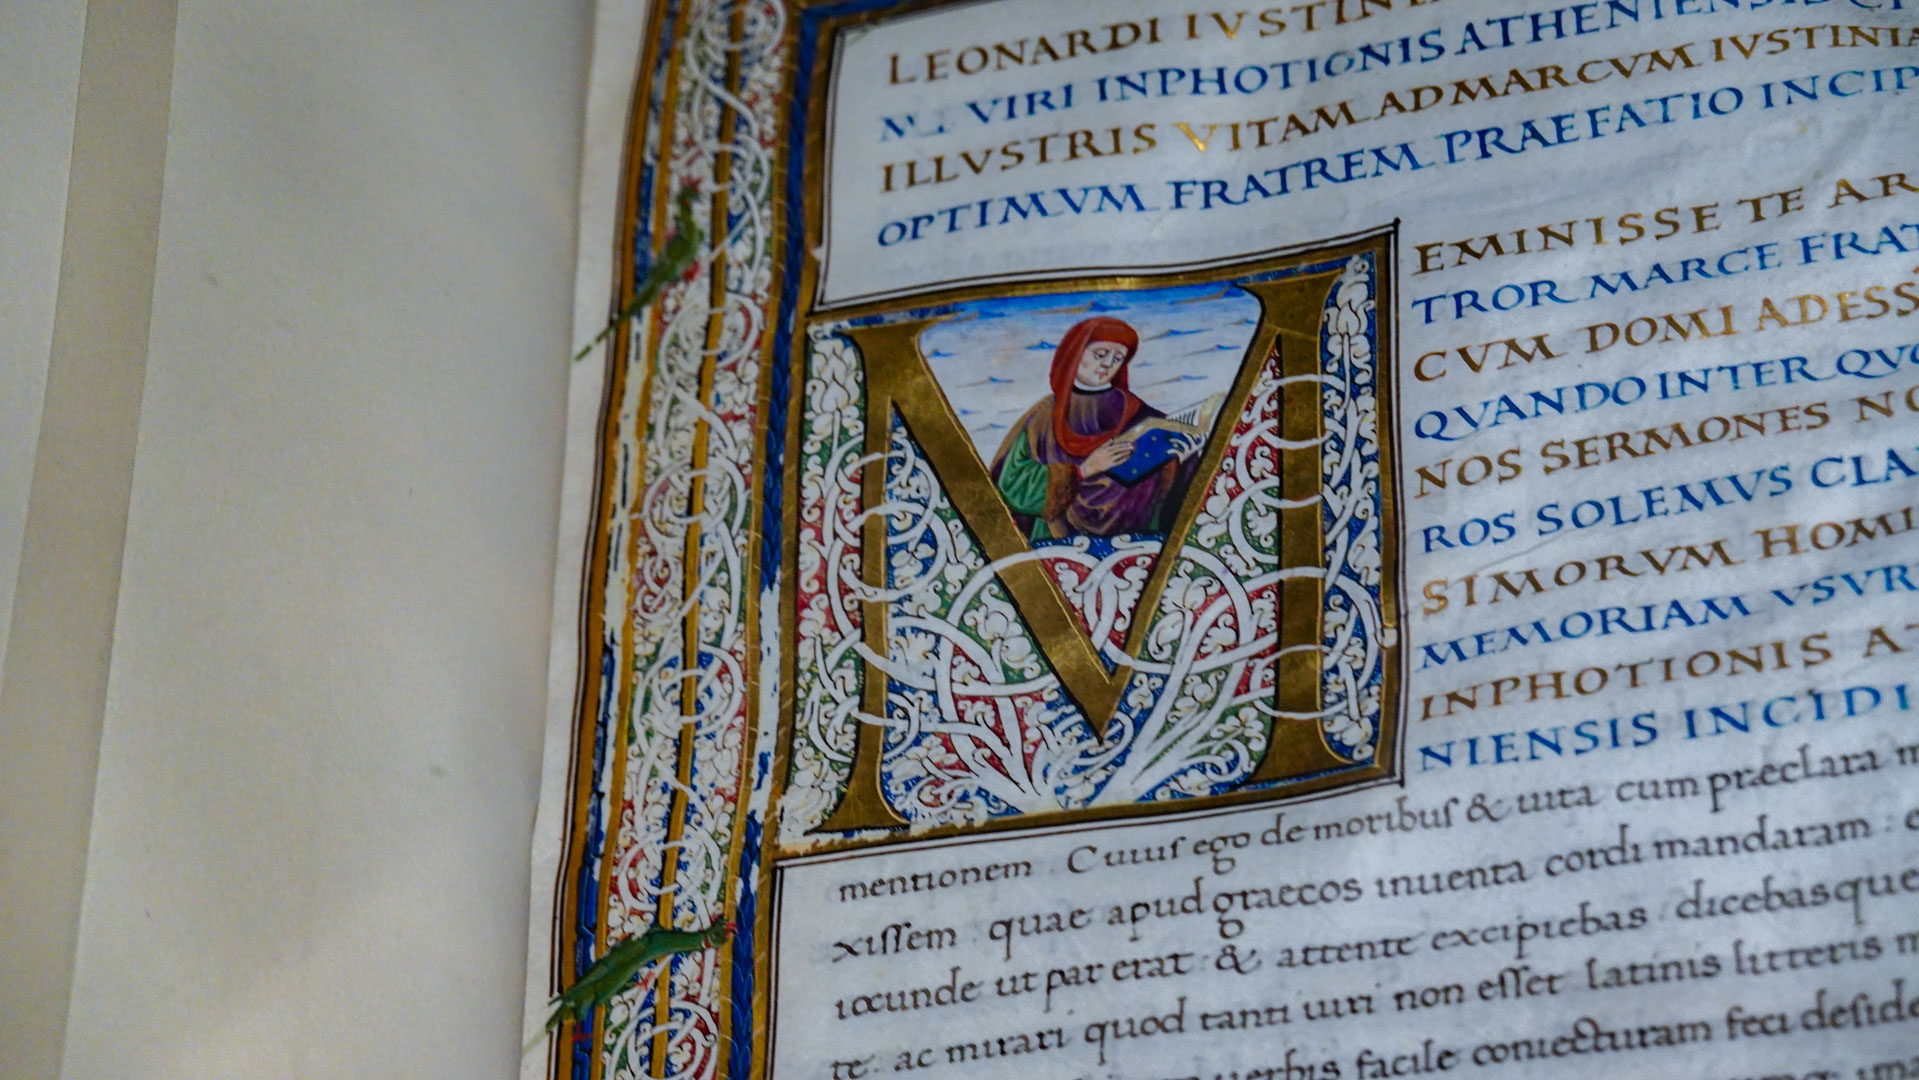 LEONARDI IVSTINIA
VIRI INPHOTIONIS ATHENIENSIS
ILLVSTRIS VITAM ADMARCVM IVSTINIA
OPTIMVM FRATREM PRAEFATIO INCIP
M
EMINISSE TE AR
TROR MARCE FRAT
CVM DOMI ADESS
QVANDO INTER QVO
NOS SERMONES NO
ROS SOLEMVS CLA
SIMORVM HOMI
MEMORIAM VSVR
INPHOTIONIS AT
NIENSIS INCIDI
mentionem. Cuiuſ ego de moribuſ & uita cum præclara m
xiſſem quae apud graecos inuenta cordi mandaram: e
iocunde ut par erat: & attente excipiebas. dicebasque
te. ac mirari quod tanti uiri non eſſet latinis litteris m
uerbis facile coniecturam feci deſide